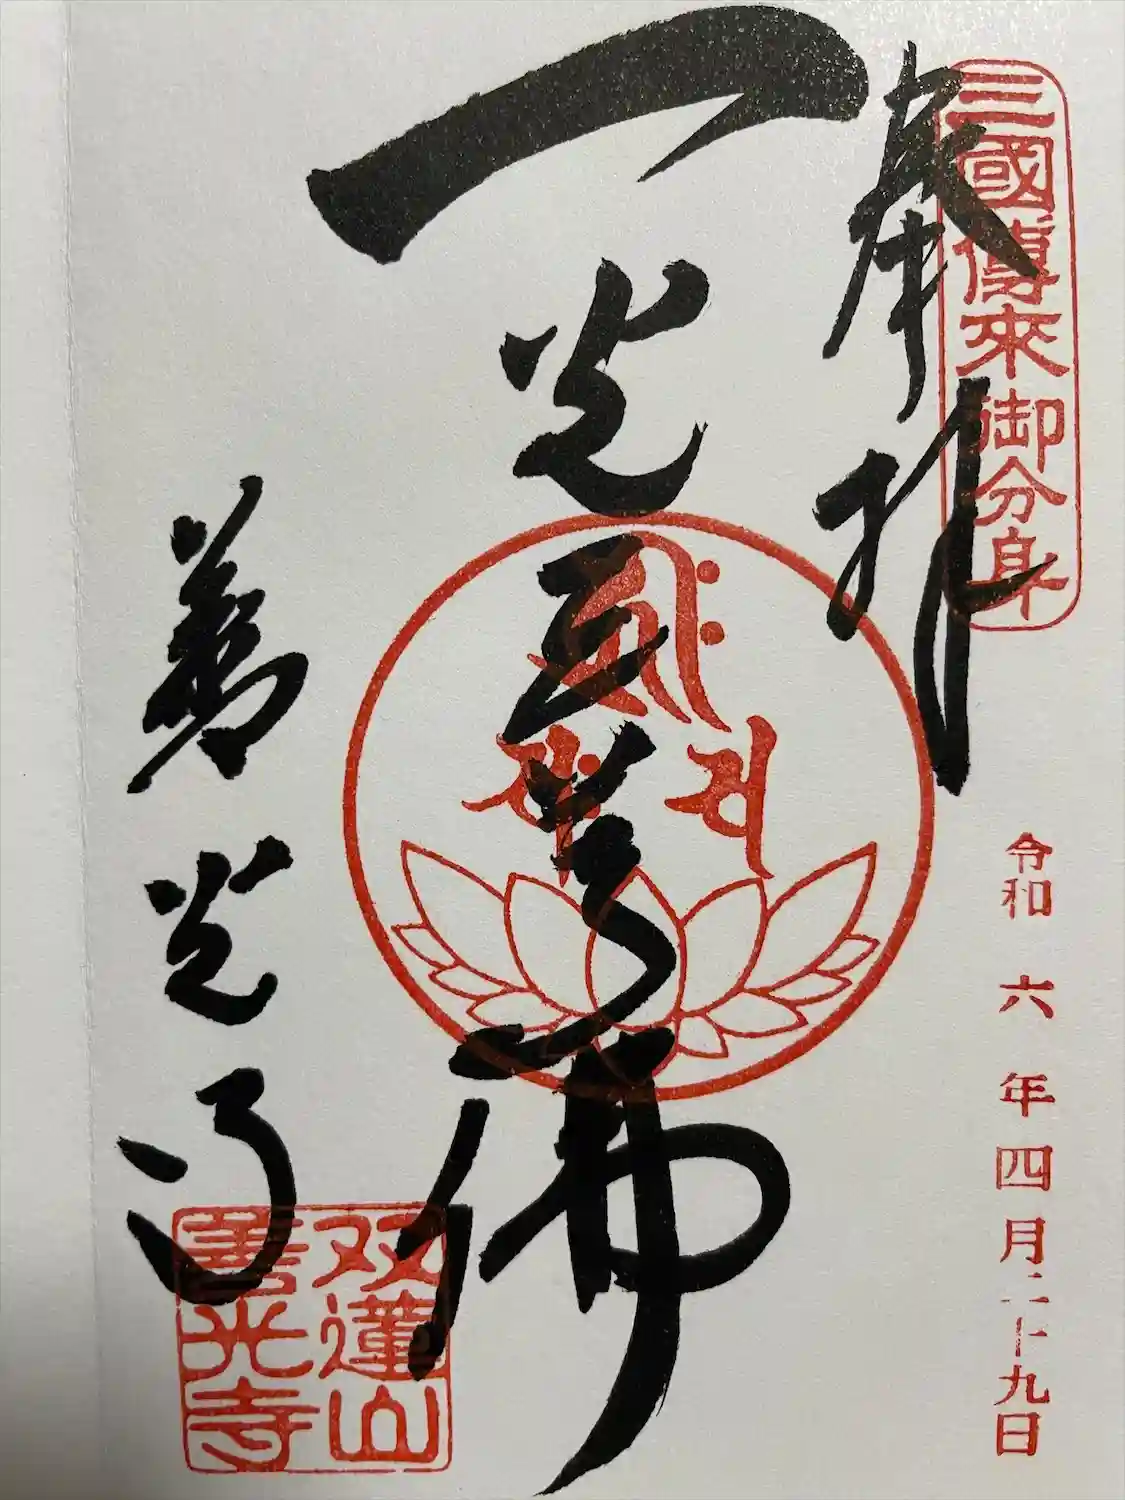 三國傳來御分身
奉拝
令和六年四月二十九日
一光三尊佛
善光寺
双蓮山
善光寺